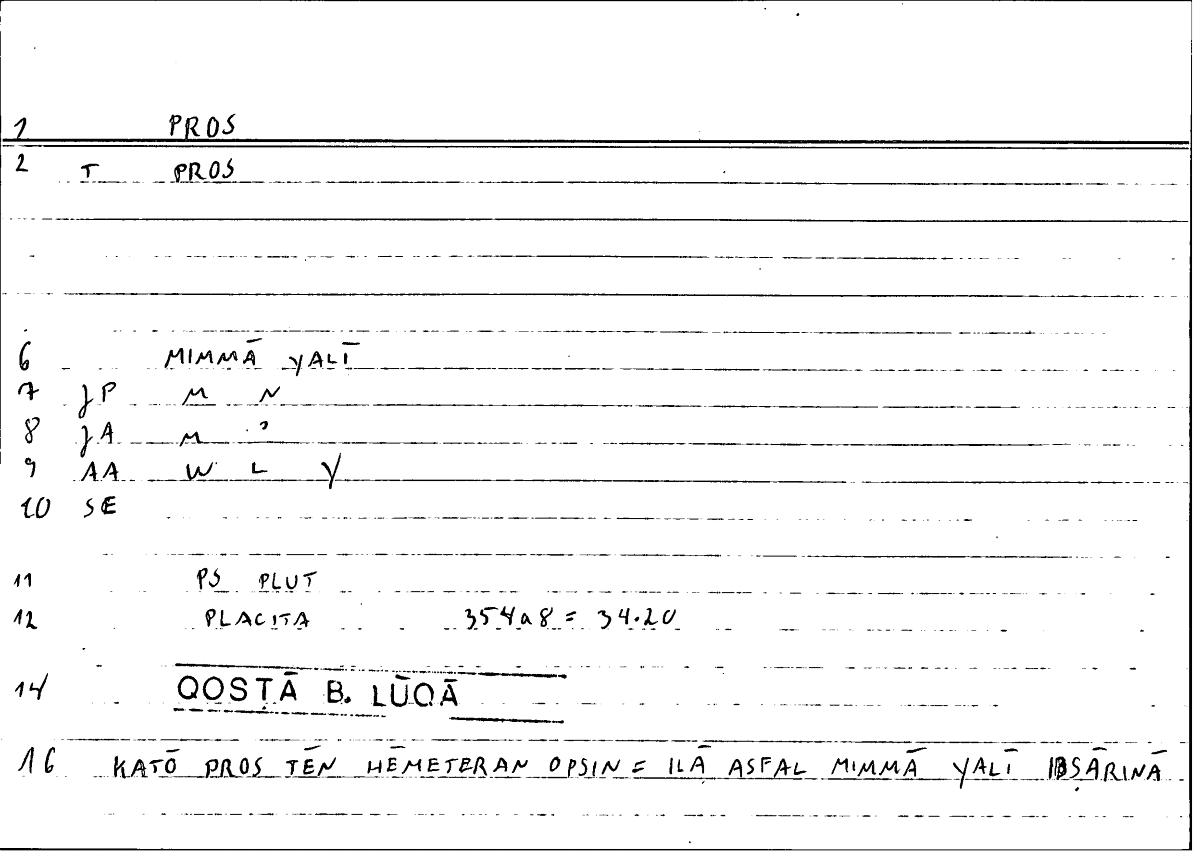 1 PROS
2 T PROS
6 MIMMĀ YALĪ
7 JP M N
8 JA M ʾ
9 AA W L Y
10 SE
11 PS PLUT
12 PLACITA 354a8 = 34.20
14 QOSṬĀ B. LŪQĀ
16 KATŌ PROS TĒN HĒMETERAN OPSIN = ILĀ ASFAL MIMMĀ YALĪ IBṢĀRINĀ